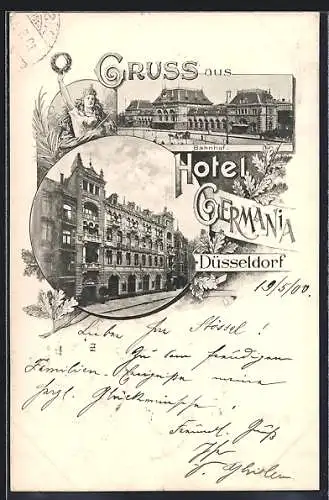 GRUSS aus
Bahnhof.
Hotel
GERMANIA
Düsseldorf
19/5/00.
Lieber Herr Stössel!
Zu dem freudigen
Familien-Ereignisse meine
herzl. Glückwünsche!
Freundl. Gruß